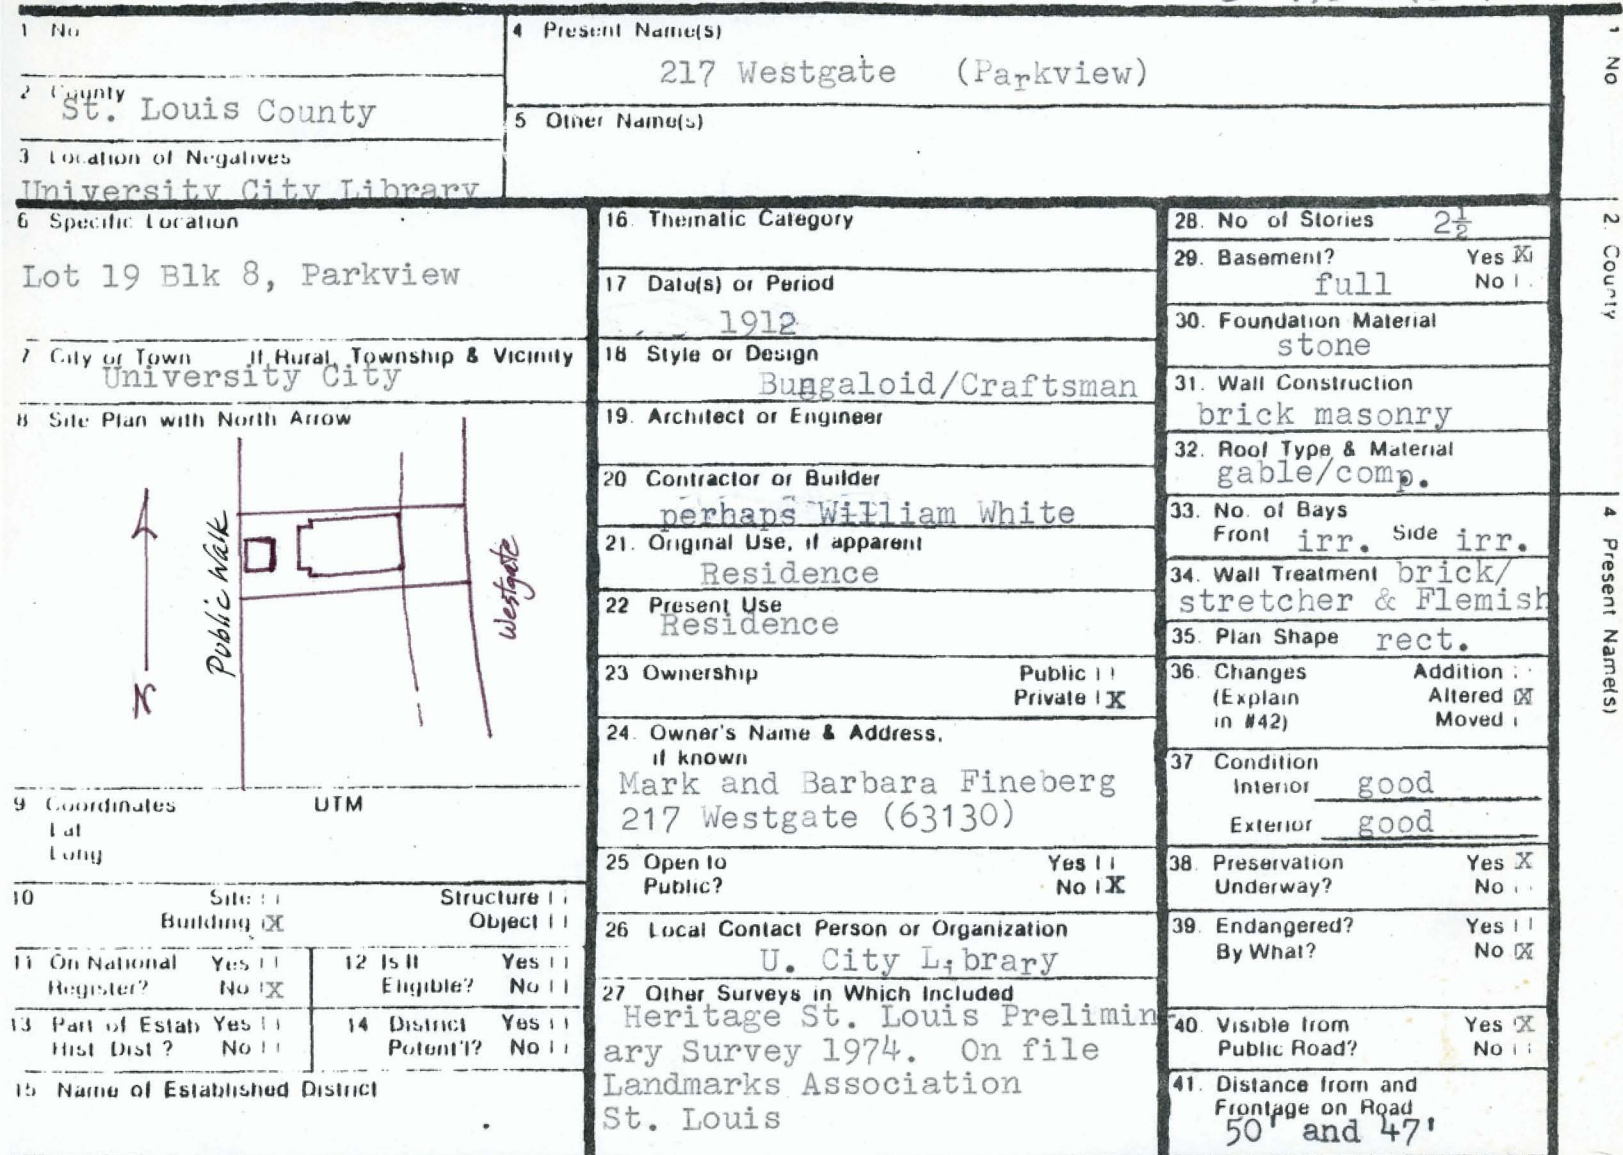 1 No
4 Present Name(s)
217 Westgate (Parkview)
2 County
St. Louis County
5 Other Name(s)
3 Location of Negatives
University City Library
6 Specific Location
Lot 19 Blk 8, Parkview
7 City or Town If Rural, Township & Vicinity
University City
8 Site Plan with North Arrow
Public Walk
Westgate
N
9 Coordinates UTM
Lat
Long
10 Site
Structure
Building X
Object
11 On National Register? Yes No X
12 Is It Eligible? Yes No
13 Part of Estab Hist Dist? Yes No
14 District Potent'l? Yes No
15 Name of Established District
16 Thematic Category
17 Date(s) or Period
1912
18 Style or Design
Bungaloid/Craftsman
19. Architect or Engineer
20 Contractor or Builder
perhaps William White
21. Original Use, if apparent
Residence
22 Present Use
Residence
23 Ownership Public
Private X
24. Owner's Name & Address,
if known
Mark and Barbara Fineberg
217 Westgate (63130)
25 Open to Yes
Public? No X
26 Local Contact Person or Organization
U. City Library
27 Other Surveys in Which Included
Heritage St. Louis Prelimin
ary Survey 1974. On file
Landmarks Association
St. Louis
28. No of Stories 2½
29. Basement? Yes X
full No
30. Foundation Material
stone
31. Wall Construction
brick masonry
32. Roof Type & Material
gable/comp.
33. No. of Bays
Front irr. Side irr.
34. Wall Treatment brick/
stretcher & Flemish
35. Plan Shape rect.
36. Changes Addition
(Explain Altered X
in #42) Moved
37 Condition
Interior good
Exterior good
38. Preservation Yes X
Underway? No
39. Endangered? Yes
By What? No X
40. Visible from Yes X
Public Road? No
41. Distance from and
Frontage on Road
50' and 47'
1 No
2. County
4 Present Name(s)